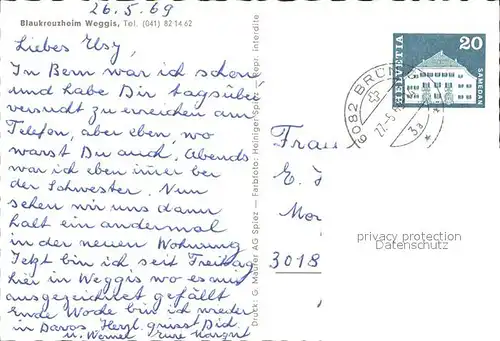 26.5.69
Blaukreuzheim Weggis, Tel. (041) 82 14 62
Liebes Elsy,
In Bern war ich schon
und habe Dir tagsüber
versucht zu erreichen am
Telefon, aber eben, wo
warst Du auch. Abends
war ich eben imer bei
der Schwester. Nun
sehen wir uns dann
halt ein andermal
in der neuen Wohnung
Jetzt bin ich seit Freitag
hier in Weggis wo es mir
ausgezeichnet gefällt
ende Woche bin ich wieder
in Davos Herzl. grüsst Dich
u. Werner Eure Margrit
Druck: G. Maurer AG Spiez — Farbfoto: Heiniger Spiez — Repr. interdite
HELVETIA
20
SAMEDAN
6082 BRÜN
27.-5.
3a
Frau
E.
3018
privacy protection
Datenschutz